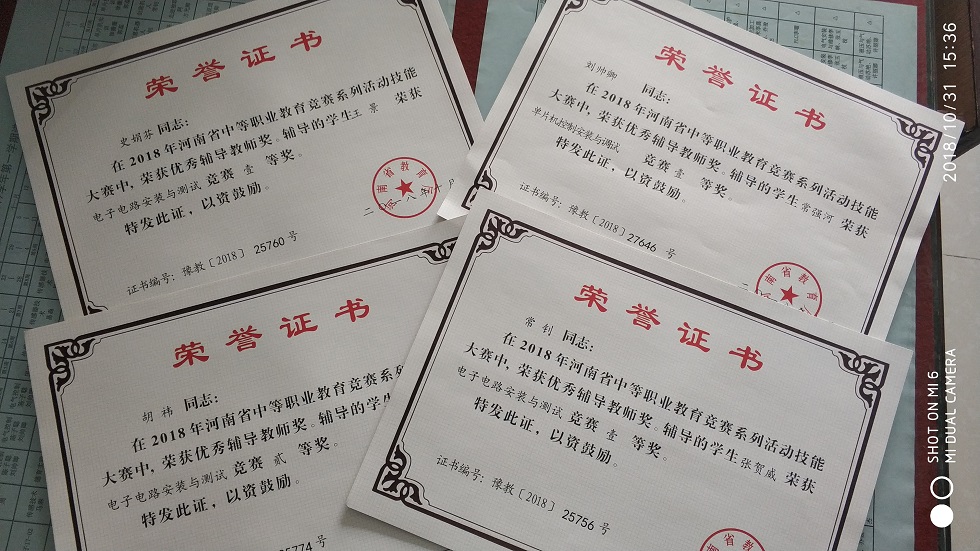 荣誉证书
史娟芬 同志:
在2018年河南省中等职业教育竞赛系列活动技能
大赛中,荣获优秀辅导教师奖。辅导的学生王 景 荣获
电子电路安装与测试 竞赛 壹 等奖。
特发此证,以资鼓励。
证书编号: 豫教〔2018〕25760 号
荣誉证书
刘帅卿 同志:
在2018年河南省中等职业教育竞赛系列活动技能
大赛中,荣获优秀辅导教师奖。辅导的学生 常强河 荣获
单片机控制安装与调试 竞赛 壹 等奖。
特发此证,以资鼓励。
证书编号: 豫教〔2018〕27646 号
荣誉证书
胡 祎 同志:
在2018年河南省中等职业教育竞赛系列
大赛中,荣获优秀辅导教师奖。辅导的学生
电子电路安装与测试 竞赛 贰 等奖。
特发此证,以资鼓励。
5774 号
荣誉证书
常 钊 同志:
在2018年河南省中等职业教育竞赛系列活动技能
大赛中,荣获优秀辅导教师奖。辅导的学生 张贺威 荣获
电子电路安装与测试 竞赛 壹 等奖。
特发此证,以资鼓励。
证书编号: 豫教〔2018〕25756 号
2018/10/31 15:36
SHOT ON MI 6
MI DUAL CAMERA